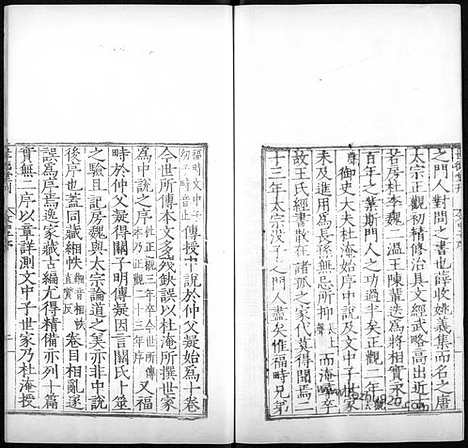 之門人對問之書也薛收姚義集而名之唐
太宗正觀初精修治具文經武略高出近古
若房杜李魏二溫王陳輩迭爲將相實永三
百年之業斯門人之功過半矣正觀二年
御史大夫杜淹始序中說及文中子世家
未及進用爲長孫無忌所抑而淹尋卒
故王氏經書散在諸孤之家代莫得聞焉二
十三年太宗没子之門人盡矣惟福畤兄弟
福畤文中子傳授中說於仲父凝始爲十卷
今世所傳本文多殘缺誤以杜淹所撰世家
爲中說之序又福
畤於仲父凝得關子明傳凝因言關氏卜筮
之驗且記房魏與太宗論道之美亦非中說
後序也蓋同藏緗帙緗音相帙直質反卷目相亂遂
誤爲序焉逸家藏古編尤得精備亦列十篇
實無二序以章詳測文中子世家乃杜淹授